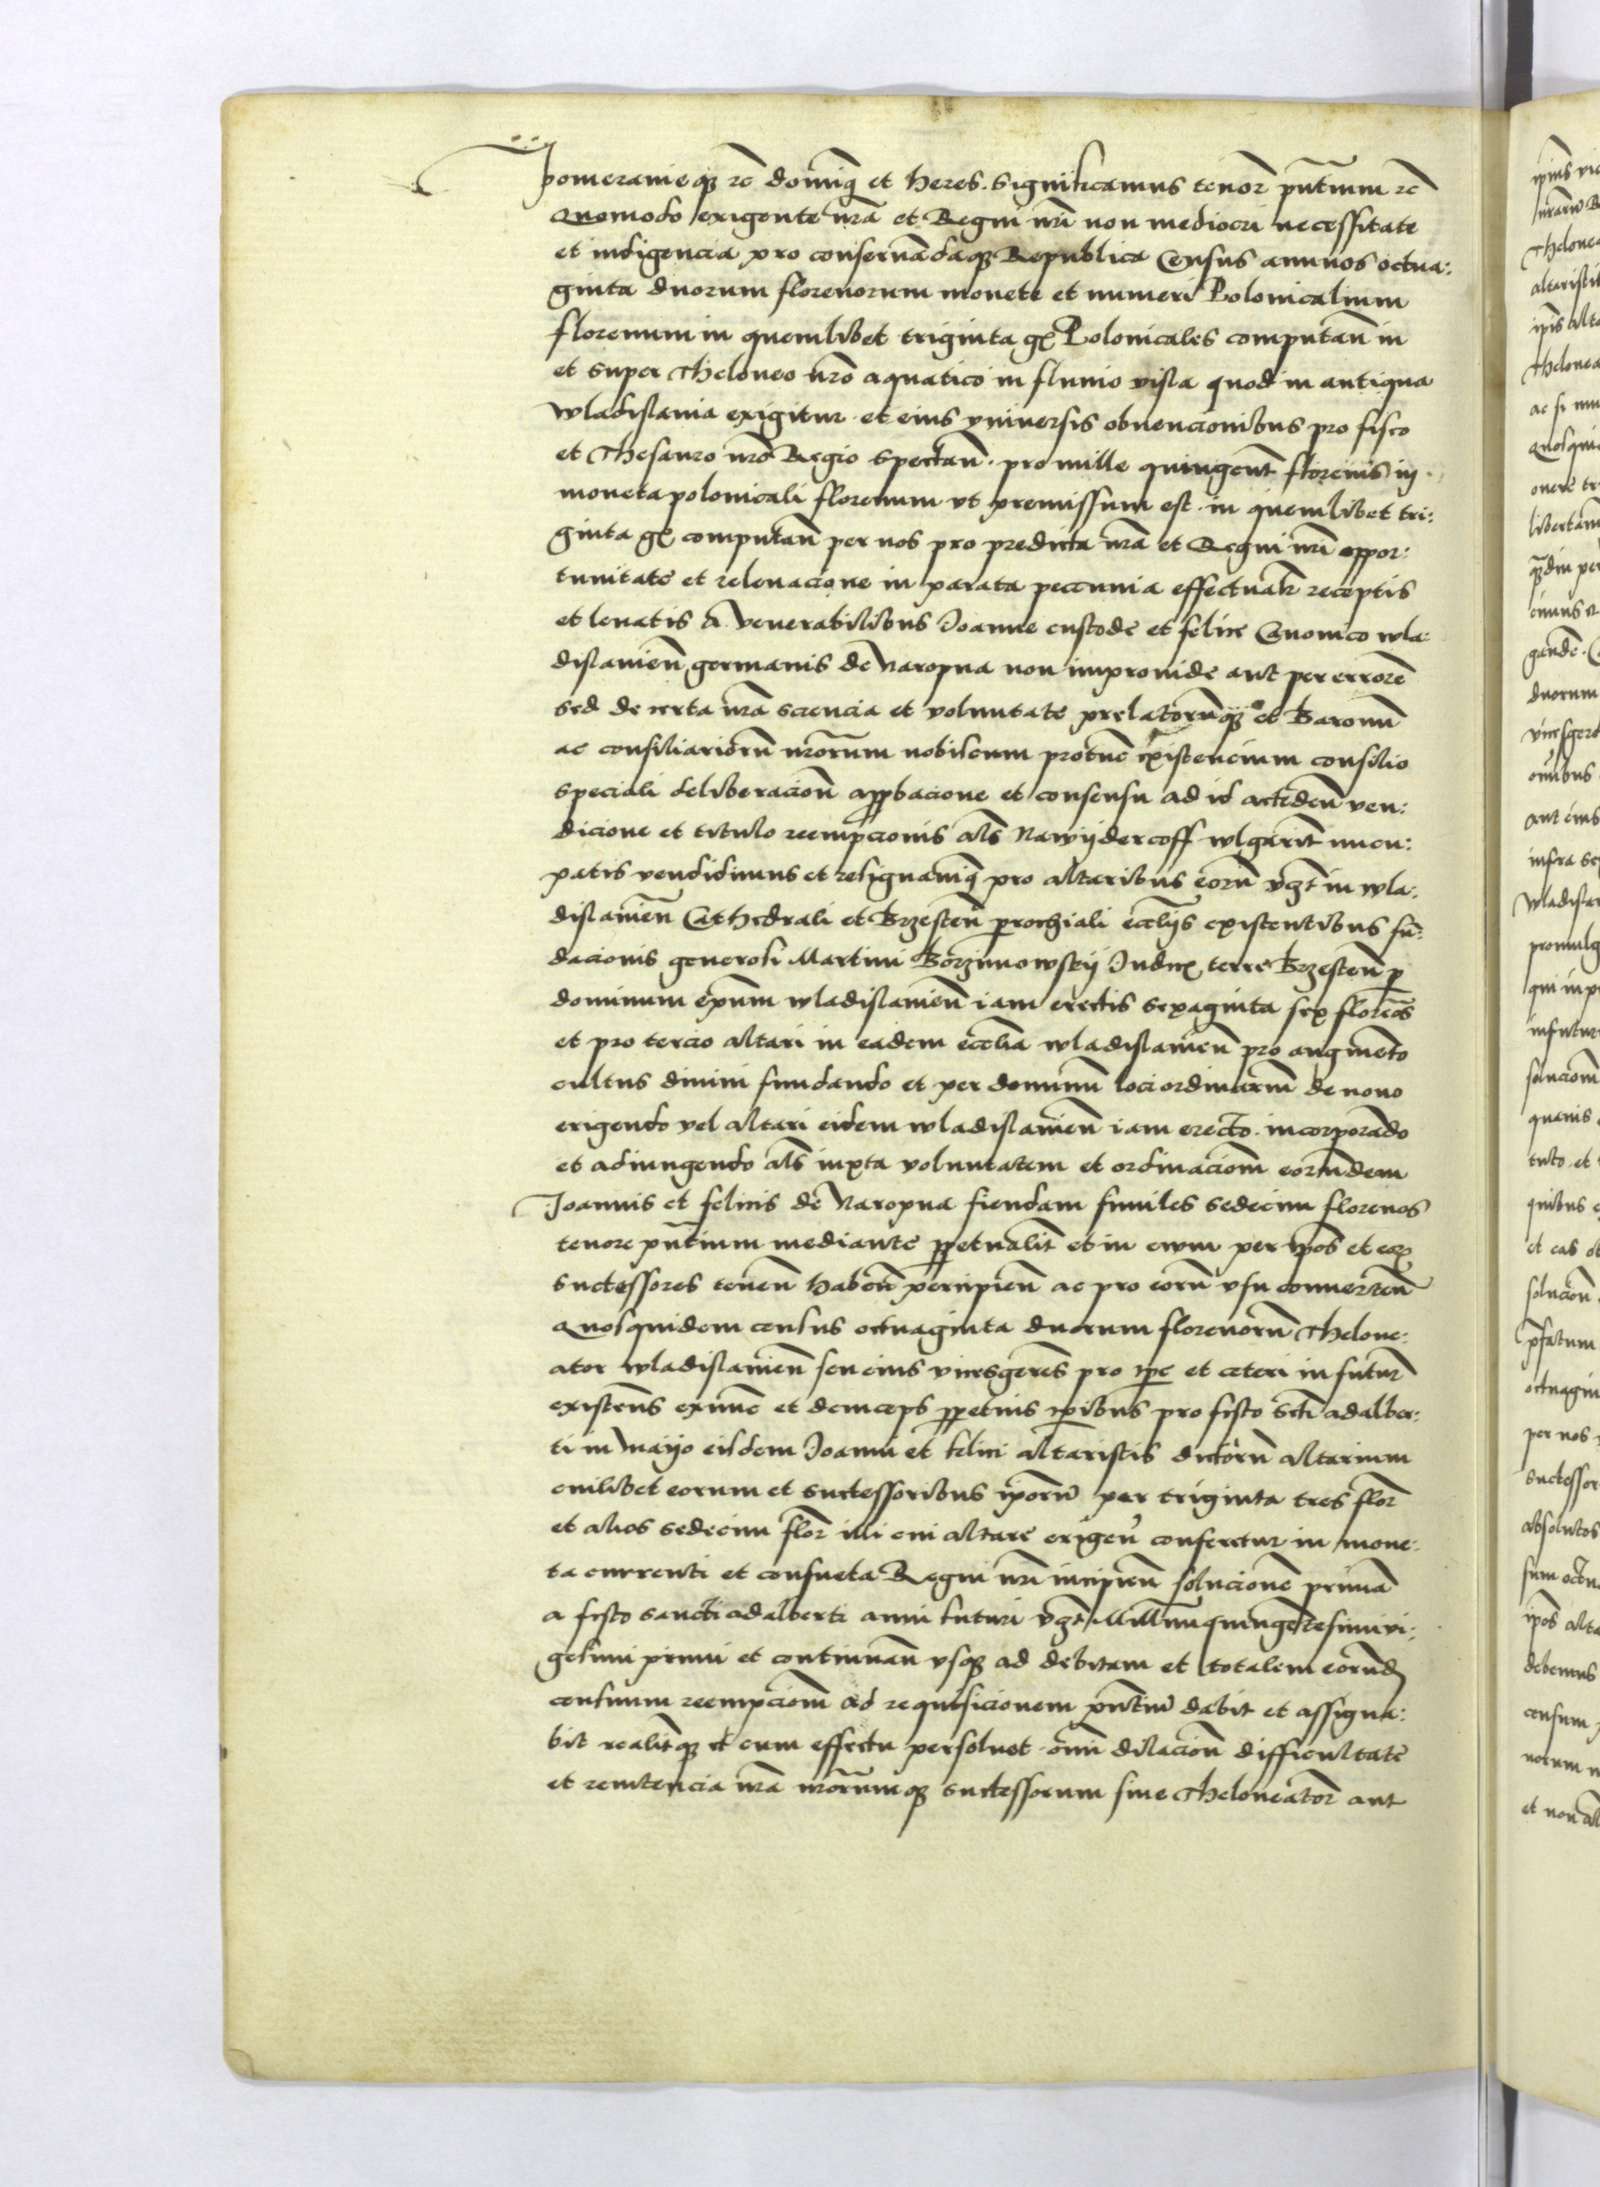 pomeranieq; rc̄ domiq̄ et heres. Significamus tenor̄ pn̄tium rc̄
Quomodo exigente nr̄a et Regni nr̄i non mediocri necessitate
et indigencia pro conseruandaq; Republica Census annuos octua:
ginta duorum florenorum monete et numeri Polonicalium
florenum in quemlibet triginta gr̄ Polonicales computan̄ in
et super Theloneo nr̄o aquatico in fluuio visla quod in antiqua
wladislauia exigitur et eius vniuersis obuencionibus pro fisco
et Thesauro nr̄o Regio spectan̄. pro mille quingent̄ florenis in
moneta polonicali florenum vt premissum est in quemlibet tri:
ginta gr̄ computan̄ per nos pro predicta nr̄a et Regni nr̄i oppor:
tunitate et releuacione in parata peccunia effectualr̄ receptis
et leuatis A venerabilibus Joanne custode et felice Canonico wla:
dislauien̄ germanis de Naropna non improuide aut per errorē
sed de certa nr̄a sciencia et voluntate prelatorūq; et Baronū
ac consiliariorū nr̄orum nobiscum protunc existencium consilio
speciali deliberacion̄ appbacione et consensu ad id acceden̄ ven:
dicione et titulo reempcionis als̄ Nawijdercoff wlgarit̄ nuncu:
patis vendidimus et resignauiq̄ pro altaribus eorū vz̄t in wla:
dislauien̄ Cathedrali et Brzesten̄ parochiali eccl̄ijs existentibus fun̄:
dacionis generosi Martini Borzimowskij Judicꝭ terre Brzesten̄ p̱
dominum ep̄um wladislauien̄ iam erectis sexaginta sex floren̄os
et pro tercio altari in eadem eccl̄ia wladislauien̄ pro augmento
cultus diuini fundando et per dominū loci ordinariū de nouo
erigendo vel altari eidem wladislauien̄ iam erecto incorporādo
et adiungendo als̄ iuxta voluntatem et ordinaciōm eorundem
Joannis et felicis de Naropna fiendam similes sedecim florenos
tenore pn̄tium mediante ppetualit̄ et in euum per ip̄os et eoꝝ
successores tenen̄ haben̄ percipien̄ ac pro eorū vsu conuerten̄
Quosquidem census octuaginta duorum florenorū Thelone:
ator wladislauien̄ seu eius vicesgerēs pro tpe et ceteri in futur̄
existen̄s exnunc et deinceps ppetuis tp̄ibus pro festo Scti adalber:
ti in Maijo eisdem Joanni et felici altaristis dictorū altarium
cuilibet eorum et successoribus ip̄orū per triginta tres flor̄
et alios sedecim flor̄ illi cui altare erigen̄ conferetur in mone:
ta currenti et consueta Regni nr̄i incipien̄ solucionē primā
a festo sancti adalberti anni futuri vz̄t Millm̄iquingētesimi vi:
gesimi primi et continuan̄ vsq; ad debitam et totalem eorūdꝫ
censuum reempciōm ad requisicionem pn̄tiū dabit et assigna:
bit realit̄q; et cum effectu persoluet om̄i dilacion̄ difficultate
et renitencia nr̄a nr̄orumq; successorum siue Theloneator̄ aut